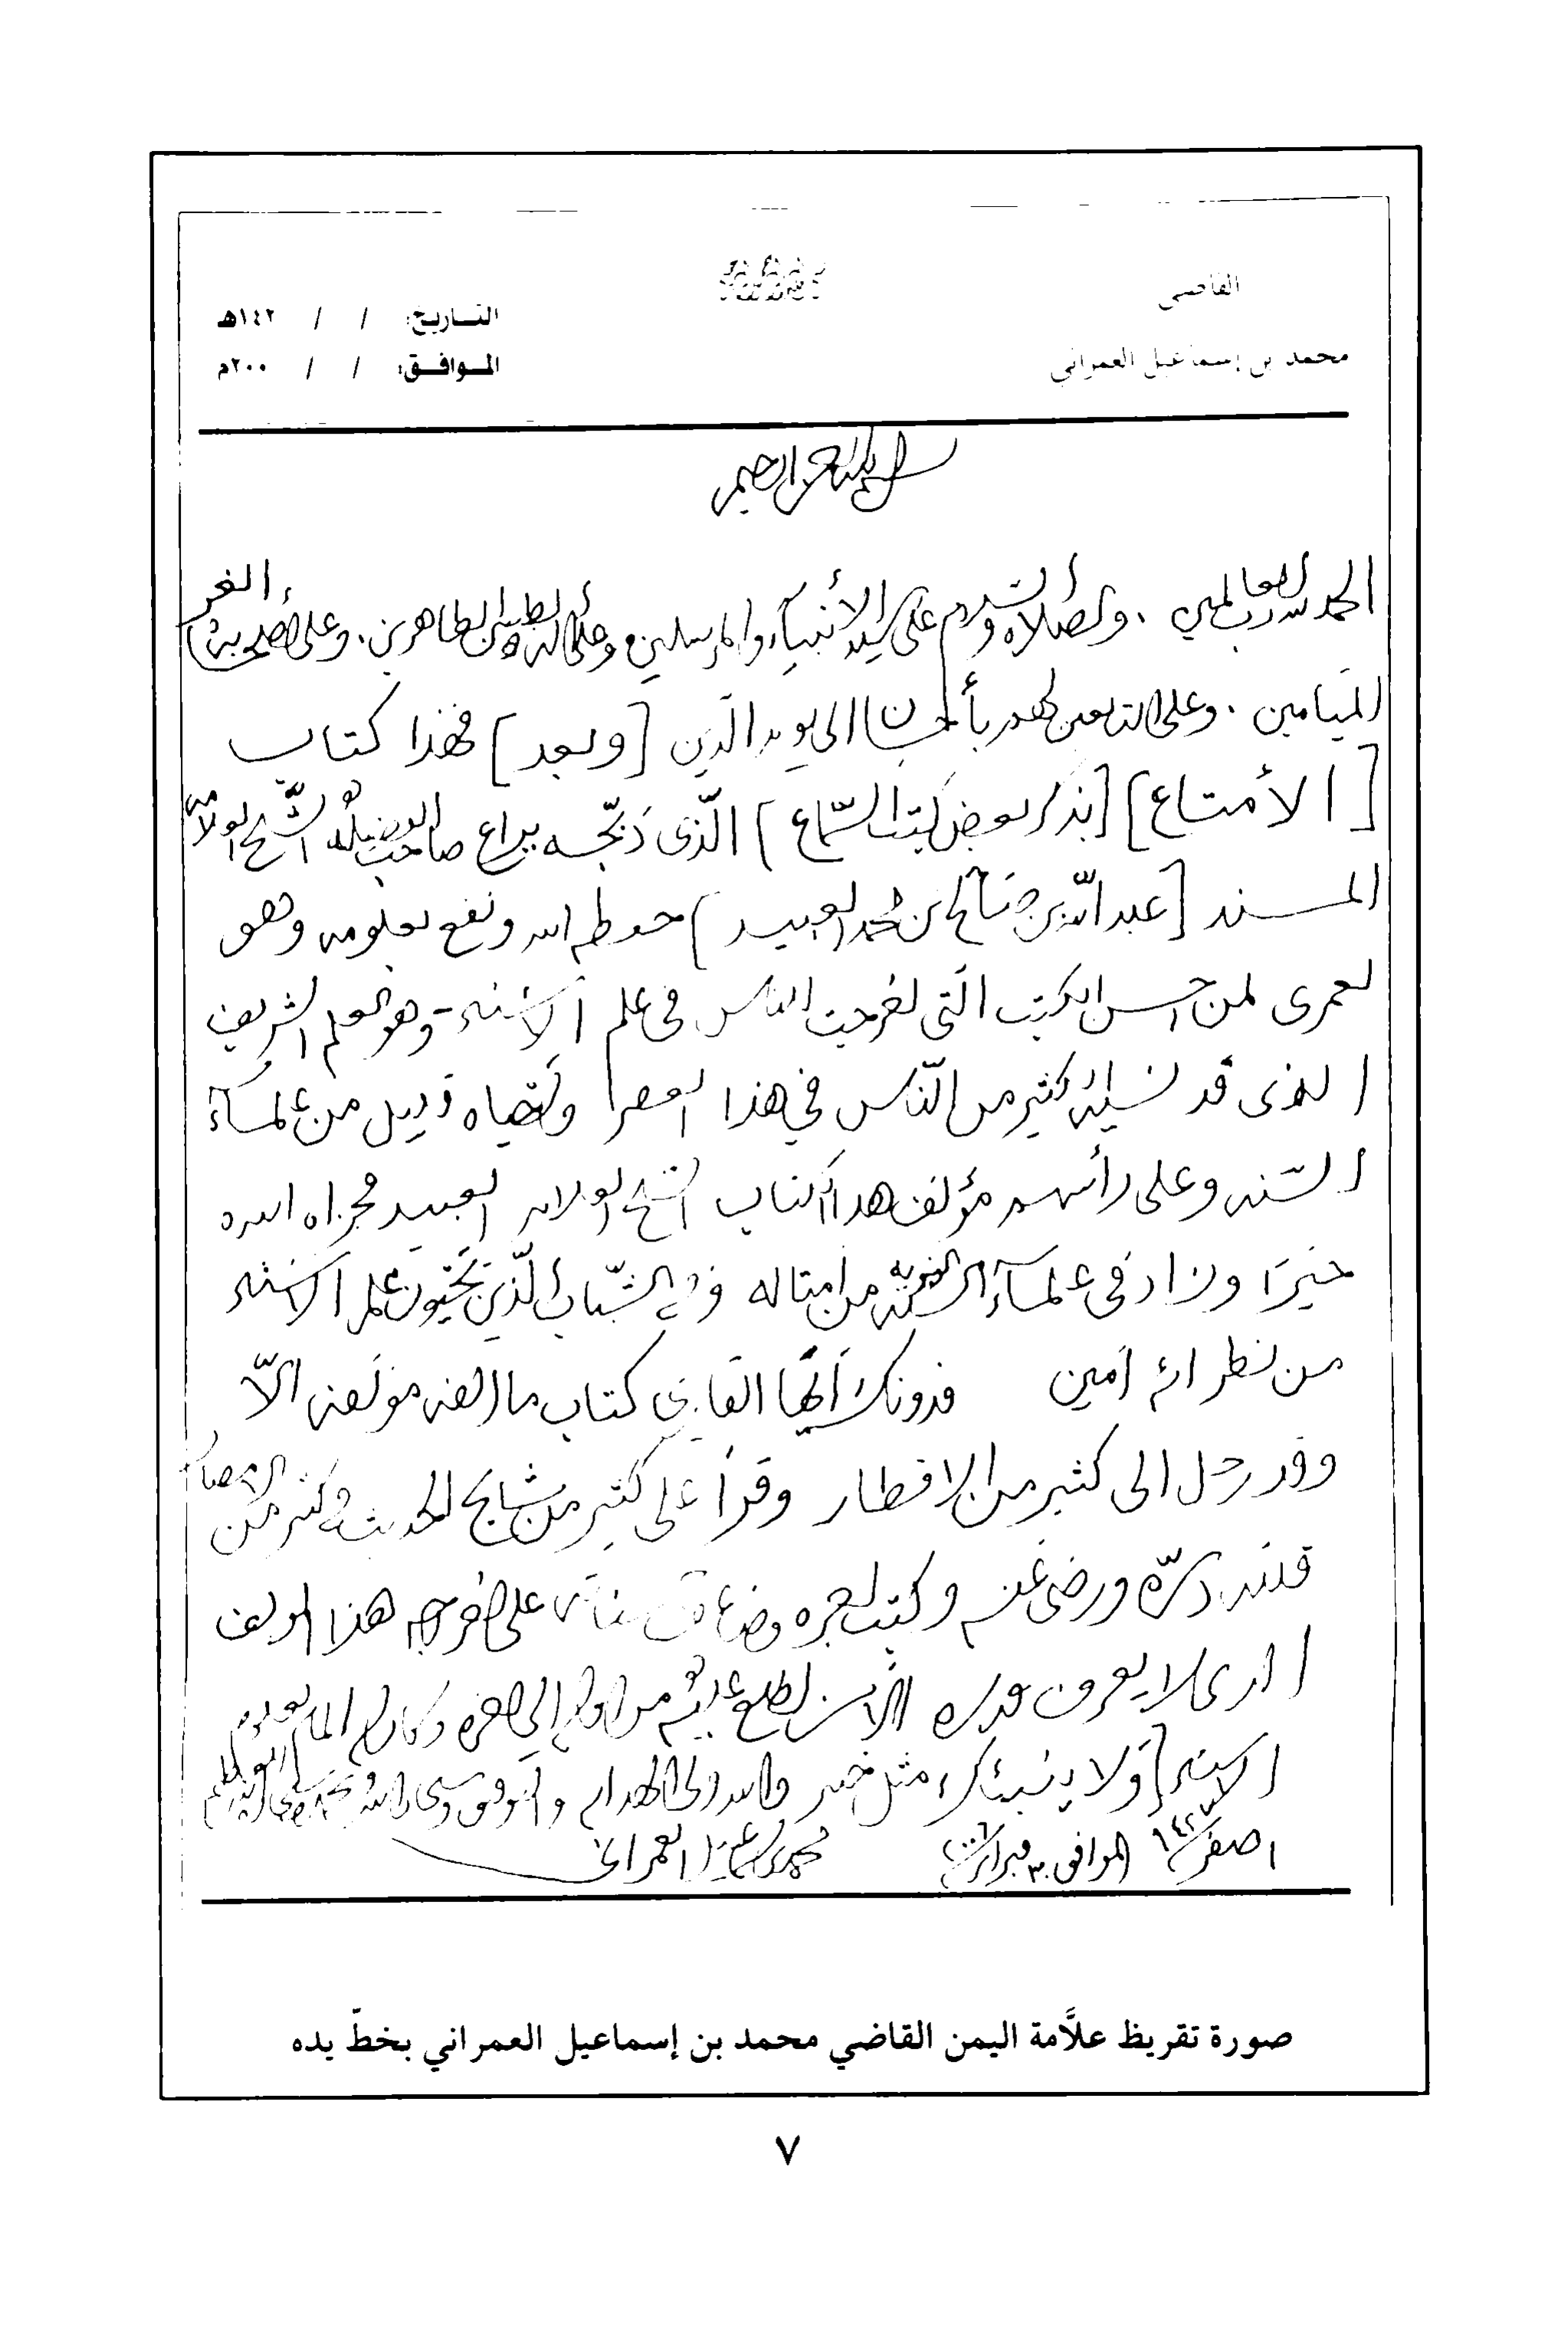 القاضي
محمد بن إسماعيل العمراني
التـاريخ: / / ١٤٢هـ
المـوافـق: / / ٢٠٠م
بسم الله الرحمن الرحيم
الحمد لله رب العالمين . والصلاة والسلام على سيد الأنبياء والمرسلين وعلى آله الطيبين الطاهرين . وعلى أصحابه الغر
الميامين . وعلى التابعين لهم بأحسان الى يوم الدين [وبعد] فهذا كتاب
[الأمتاع] [بذكر بعض كتب السماع] الذى دبجه يراع صاحب الفضيلة الشيخ العلامه
المسند [عبد الله بن صالح بن محمد العبيد] حفظه الله ونفع بعلومه وهو
لعمرى لمن احسن الكتب التى اخرجت للناس فى علم الأسنيد وهو العلم الشريف
الذى قد نسيه كثير من الناس في هذا العصر وأحياه قليل من علمآء
السنه وعلى رأسهم مؤلف هذا الكتاب الشيخ العلامه العبيد فجزاه الله
خيرًا وزاد فى علمآء السنه النبويه من امثاله وفي الشباب الذين يحبون علم الاسنيد
من نظرائه آمين فدونك أيها القارئ كتاب ما الفه مؤلفه الاّ
وقد رحل الى كثير من الاقطار وقرأ على كثير من مشايخ الحديث فى كثير من الامصار
فلله درّه ورضى عنه وكتب اجره
الذى لا يعرف قدره الا من اطلع عليه من اوله إلى اخره وكان له المام بعلوم
الاسنيد [ولا ينبئك مثل خبير] والله ولى الهدايه والتوفيق وصلى الله
محمد بن اسماعيل العمراني
صورة تقريظ علاَّمة اليمن القاضي محمد بن إسماعيل العمراني بخطّ يده
٧